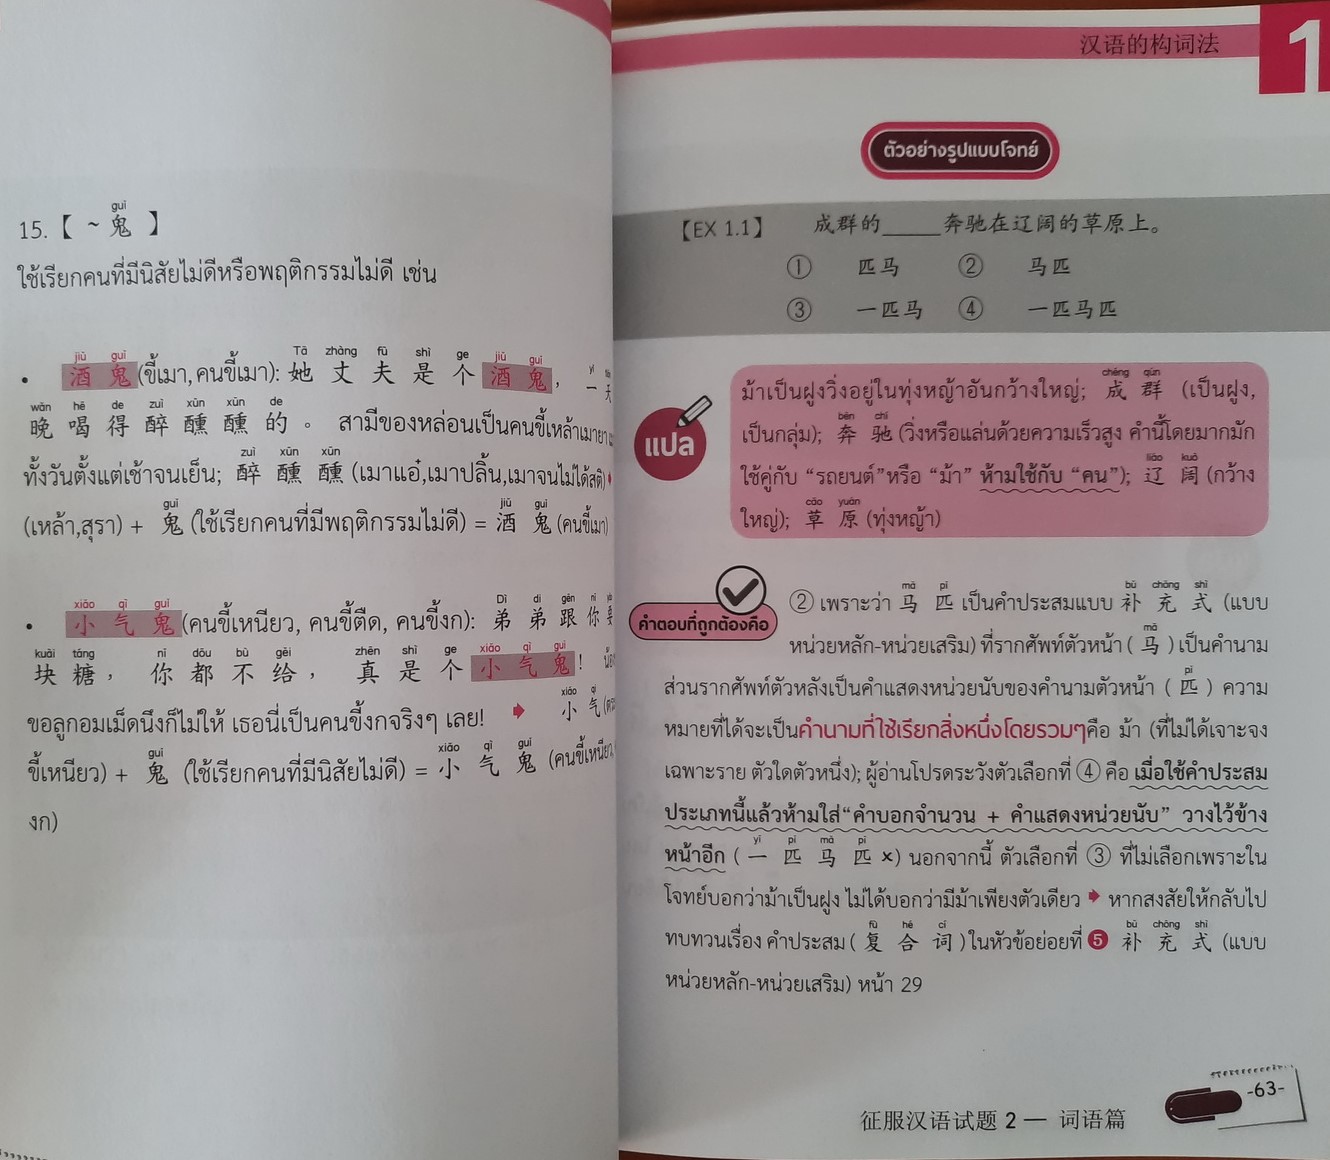 guǐ
15.【 ~ 鬼 】
ใช้เรียกคนที่มีนิสัยไม่ดีหรือพฤติกรรมไม่ดี เช่น
jiǔ guǐ Tā zhàng fū shì ge jiǔ guǐ yì
• 酒 鬼 (ขี้เมา, คนขี้เมา): 她 丈 夫 是 个 酒 鬼 , 一 天
wǎn hē de zuì xūn xūn de
晚 喝 得 醉 醺 醺 的 。 สามีของหล่อนเป็นคนขี้เหล้าเมายา
zuì xūn xūn
ทั้งวันตั้งแต่เช้าจนเย็น; 醉 醺 醺 (เมาแอ๋,เมาปลิ้น,เมาจนไม่ได้สติ)
guǐ jiǔ guǐ
(เหล้า,สุรา) + 鬼 (ใช้เรียกคนที่มีพฤติกรรมไม่ดี) = 酒 鬼 (คนขี้เมา)
xiǎo qì guǐ Dì di gēn nǐ yào
• 小 气 鬼 (คนขี้เหนียว, คนขี้ตืด, คนขี้งก): 弟 弟 跟 你 要
kuài táng nǐ dōu bù gěi zhēn shì ge xiǎo qì guǐ
块 糖 , 你 都 不 给 , 真 是 个 小 气 鬼 !
xiǎo qì
ขอลูกอมเม็ดนึงก็ไม่ให้ เธอนี่เป็นคนขี้งกจริงๆ เลย! ➧ 小 气
guǐ xiǎo qì guǐ
ขี้เหนียว) + 鬼 (ใช้เรียกคนที่มีนิสัยไม่ดี) = 小 气 鬼 (คนขี้เหนียว,
งก)
汉语的构词法 1
ตัวอย่างรูปแบบโจทย์
【EX 1.1】 成群的_____奔驰在辽阔的草原上。
① 匹马 ② 马匹
③ 一匹马 ④ 一匹马匹
แปล
chéng qún
ม้าเป็นฝูงวิ่งอยู่ในทุ่งหญ้าอันกว้างใหญ่; 成 群 (เป็นฝูง,
bēn chí
เป็นกลุ่ม); 奔 驰 (วิ่งหรือแล่นด้วยความเร็วสูง คำนี้โดยมากมัก
liáo kuò
ใช้คู่กับ “รถยนต์”หรือ “ม้า” ห้ามใช้กับ “คน”); 辽 阔 (กว้าง
cǎo yuán
ใหญ่); 草 原 (ทุ่งหญ้า)
คำตอบที่ถูกต้องคือ
mǎ pǐ bǔ chōng shì
② เพราะว่า 马 匹 เป็นคำประสมแบบ 补 充 式 (แบบ
mǎ
หน่วยหลัก-หน่วยเสริม) ที่รากศัพท์ตัวหน้า ( 马 ) เป็นคำนาม
pǐ
ส่วนรากศัพท์ตัวหลังเป็นคำแสดงหน่วยนับของคำนามตัวหน้า ( 匹 ) ความ
หมายที่ได้จะเป็นคำนามที่ใช้เรียกสิ่งหนึ่งโดยรวมๆคือ ม้า (ที่ไม่ได้เจาะจง
เฉพาะราย ตัวใดตัวหนึ่ง); ผู้อ่านโปรดระวังตัวเลือกที่ ④ คือ เมื่อใช้คำประสม
ประเภทนี้แล้วห้ามใส่“คำบอกจำนวน + คำแสดงหน่วยนับ” วางไว้ข้าง
yì pǐ mǎ pǐ
หน้าอีก ( 一 匹 马 匹 ×) นอกจากนี้ ตัวเลือกที่ ③ ที่ไม่เลือกเพราะใน
โจทย์บอกว่าม้าเป็นฝูง ไม่ได้บอกว่ามีม้าเพียงตัวเดียว ➧ หากสงสัยให้กลับไป
fù hé cí bǔ chōng shì
ทบทวนเรื่อง คำประสม ( 复 合 词 ) ในหัวข้อย่อยที่ ❺ 补 充 式 (แบบ
หน่วยหลัก-หน่วยเสริม) หน้า 29
-63-
征服汉语试题 2 — 词语篇